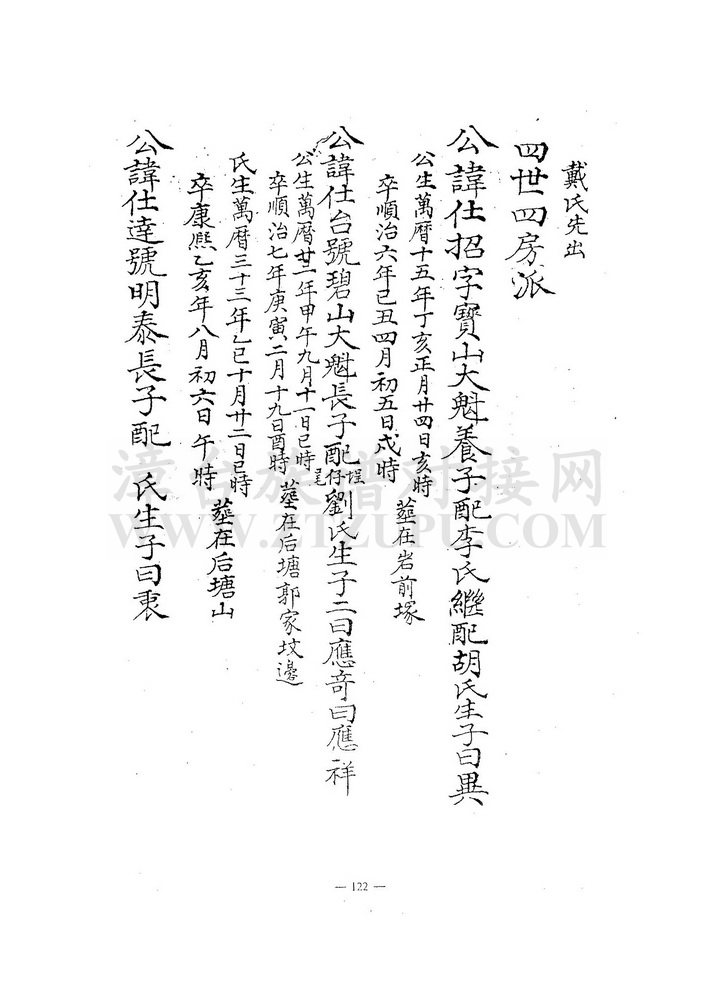 戴氏先出
四世四房派
公諱仕招字寶山大魁養子配李氏繼配胡氏生子曰異
公生萬曆十五年丁亥正月廿四日亥時
卒順治六年己丑四月初五日戌時 葬在岩前塚
公諱仕台號碧山大魁長子配埕仔尾劉氏生子二曰應奇曰應祥
公生萬曆廿二年甲午九月十一日巳時
卒順治七年庚寅二月十九日酉時 葬在后塘郭家坟邊
氏生萬曆三十三年乙巳十月廿二日巳時
卒康熙乙亥年八月初六日午時 葬在后塘山
公諱仕達號明泰長子配 氏生子曰衷
漳台族譜对接网
WWW.ZTZUPU.COM
— 122 —